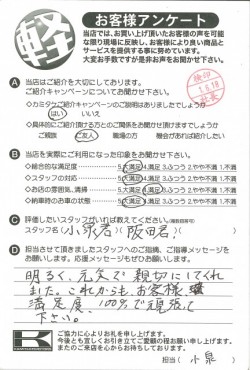 軽
お客様アンケート
当店では、お買い上げ頂いたお客様の声を可能な
限り現場に反映し、お客様により良い商品と
サービスを提供する事に努めています。
大変お手数ですが是非お声をお聞かせ下さい。
検印
1.6.18
A 当店はご紹介を大切にしております。
ご紹介キャンペーンについてお聞かせ下さい。
◇カミタケご紹介キャンペーンのご説明はありましたでしょうか
はい いいえ
◇具体的にご紹介頂ける方とのご関係をお聞かせ頂けますでしょうか
ご親族 ご友人 職場の方 機会があれば紹介したい
B 当店を実際にご利用になった印象をお聞かせ下さい。
◇総合的な満足度 5.大満足 4.満足 3.ふつう 2.やや不満 1.不満
◇スタッフの対応 5.大満足 4.満足 3.ふつう 2.やや不満 1.不満
◇お店の雰囲気、清掃 5.大満足 4.満足 3.ふつう 2.やや不満 1.不満
◇納車時のお車の状態 5.大満足 4.満足 3.ふつう 2.やや不満 1.不満
C 評価したいスタッフがいれば教えてください。
スタッフ名( 小泉君、飯田君! )
D 担当させて頂きましたスタッフへのご指摘、ご指導メッセージを
お願いします。応援メッセージもぜひお願いします。
明るく、元気で親切にしてくれ
ました。これからも、お客様
満足度、100%で頑張って
下さい。
K
ご協力に心よりお礼を申し上げます。
今後とも宜しくお引き立てご愛顧の程お願い申し上げます。
またのご来店を心からお待ちしております。
担当( 小泉 )